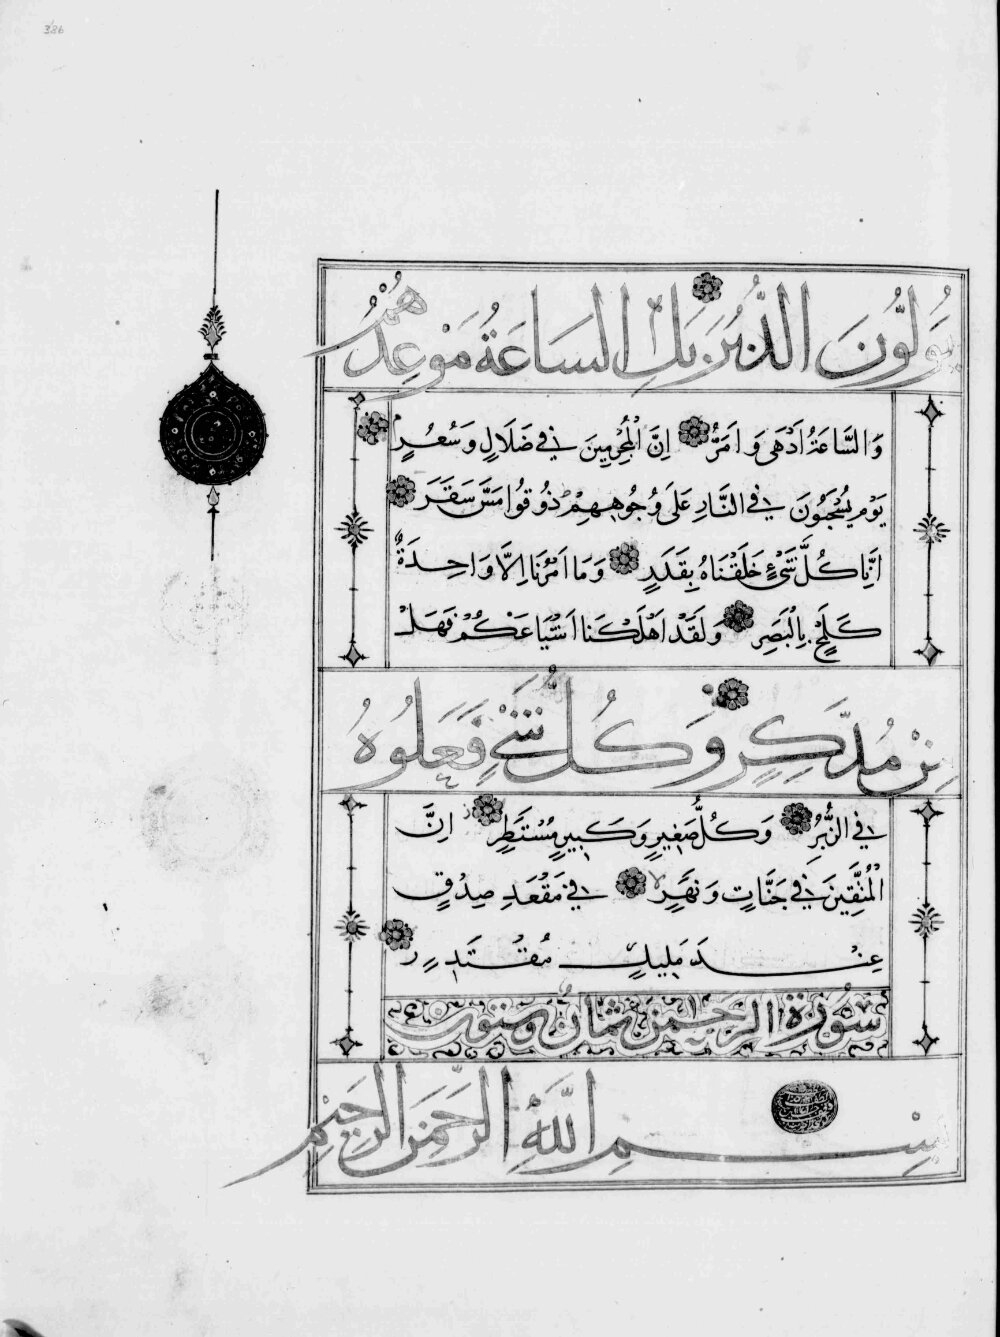 386
يُوَلُّونَ الدُّبُرَ بَلِ السَّاعَةُ مَوْعِدُهُمْ
وَالسَّاعَةُ اَدْهَى وَاَمَرُّ اِنَّ الْمُجْرِمِينَ فِي ضَلَالٍ وَسُعُرٍ
يَوْمَ يُسْحَبُونَ فِي النَّارِ عَلَى وُجُوهِهِمْ ذُوقُوا مَسَّ سَقَرَ
اِنَّا كُلَّ شَيْءٍ خَلَقْنَاهُ بِقَدَرٍ وَمَا اَمْرُنَا اِلَّا وَاحِدَةٌ
كَلَمْحٍ بِالْبَصَرِ وَلَقَدْ اَهْلَكْنَا اَشْيَاعَكُمْ فَهَلْ
مِنْ مُدَّكِرٍ وَكُلُّ شَيْءٍ فَعَلُوهُ
فِي الزُّبُرِ وَكُلُّ صَغِيرٍ وَكَبِيرٍ مُسْتَطَرٌ اِنَّ
الْمُتَّقِينَ فِي جَنَّاتٍ وَنَهَرٍ فِي مَقْعَدِ صِدْقٍ
عِنْدَ مَلِيكٍ مُقْتَدِرٍ
سُورَةُ الرَّحْمٰنِ ثمان وستون
بِسْمِ اللَّهِ الرَّحْمَنِ الرَّحِيمِ